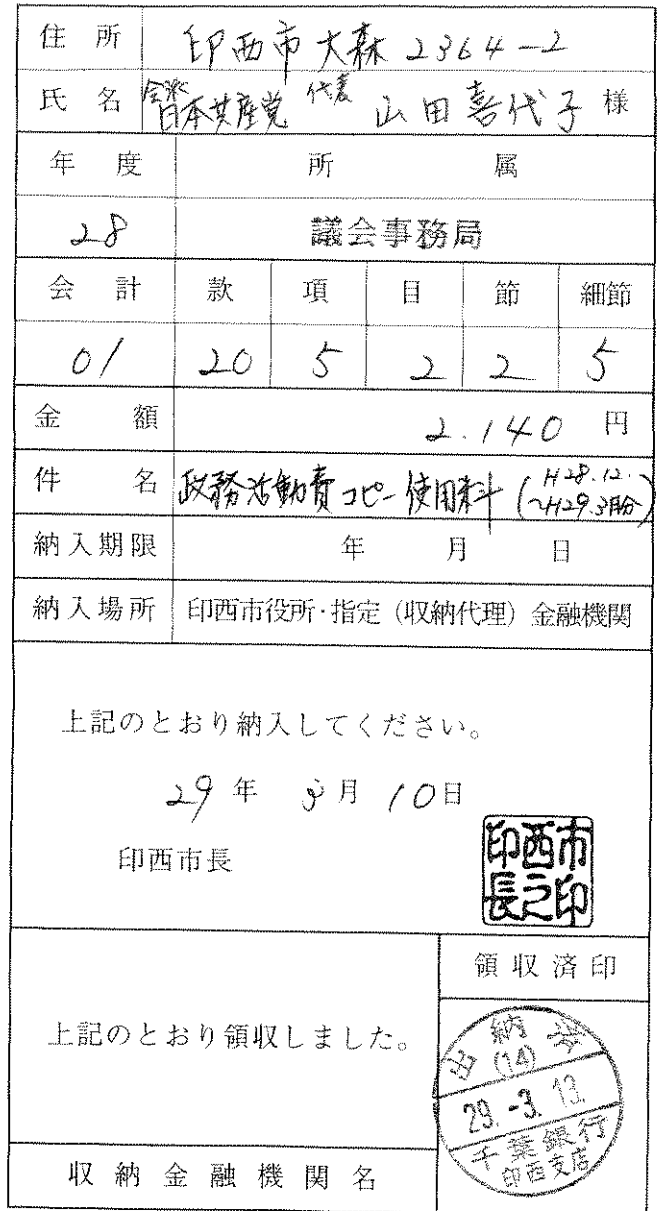 住所 印西市大森2364-2
氏名 会派 日本共産党 代表 山田喜代子 様
年度 所属
28 議会事務局
会計 款 項 目 節 細節
01 20 5 2 2 5
金額 2.140 円
件名 政務活動費コピー使用料 (H28.12.~H29.3月分)
納入期限 年 月 日
納入場所 印西市役所・指定(収納代理)金融機関
上記のとおり納入してください。
29年 3月 10日
印西市長
印西市長之印
領収済印
上記のとおり領収しました。
出納
(14)
29.-3.13.
千葉銀行
印西支店
収納金融機関名